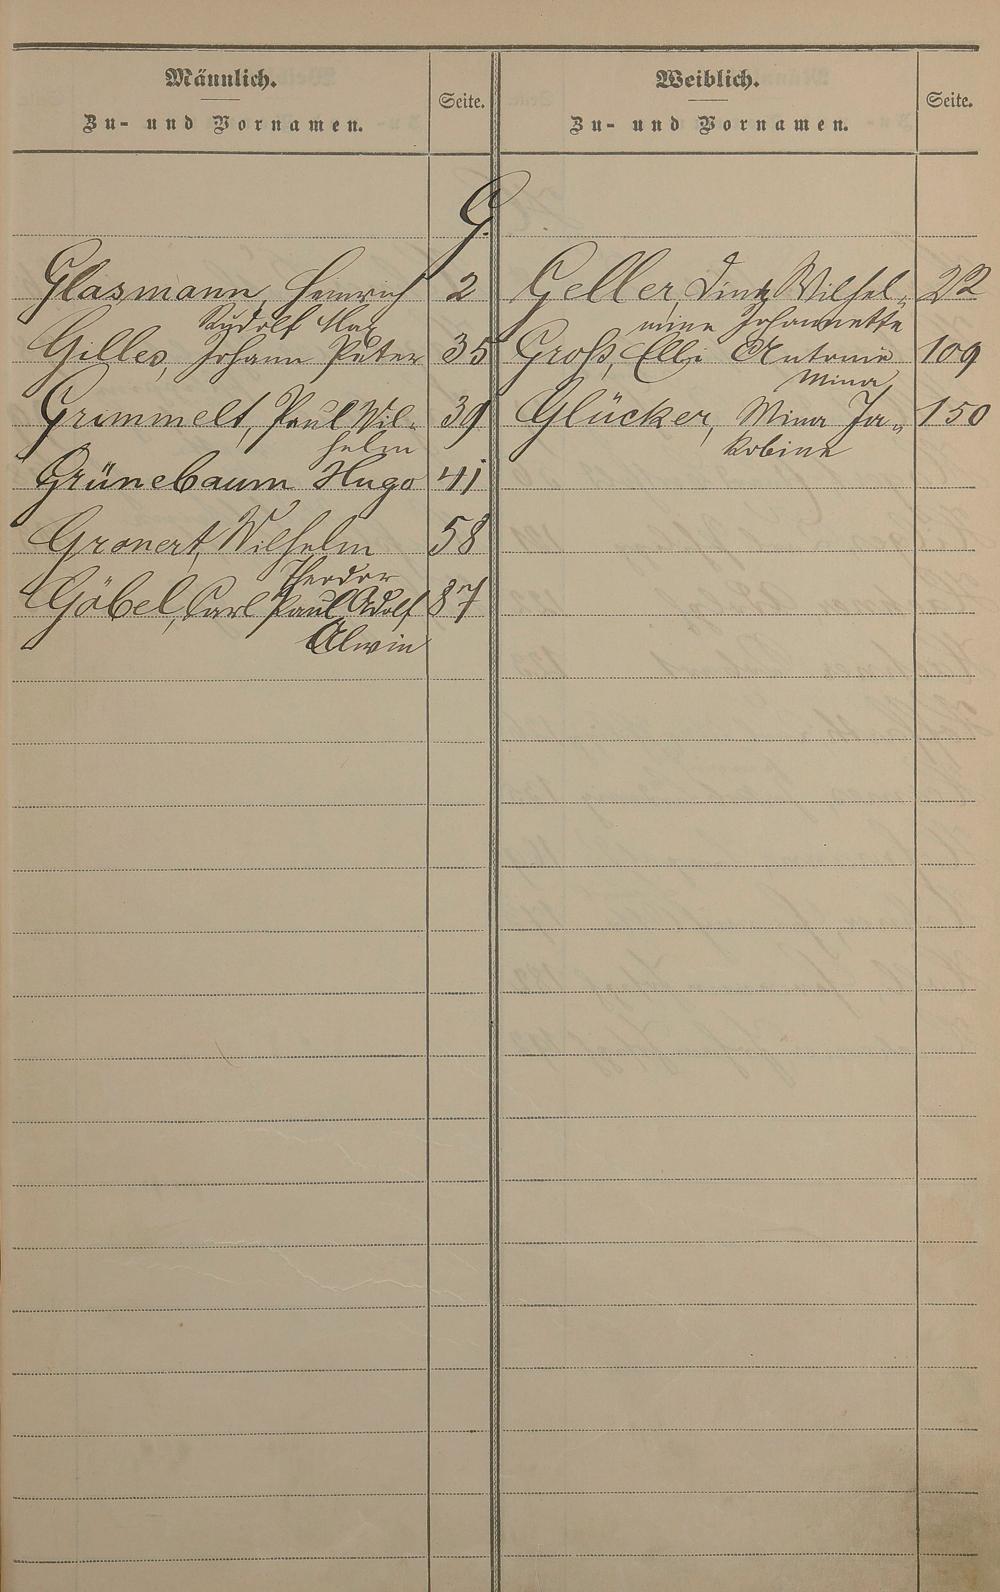 Männlich.
Zu- und Vornamen.
Seite.
Weiblich.
Zu- und Vornamen.
Seite.
G.
Glasmann, Heinrich 2
Rudolf Max
Gilles, Johann Peter 35
Grimmelt, Paul Wil-
helm 39
Grünebaum Hugo 41
Gronert, Wilhelm 58
Theodor
Göbel, Carl Paul Adolf 87
Alwin
Geller, Lina Wilhel- 22
mine Johannette
Groß, Elli Antonie 109
Mina
Glücker, Mina Ja- 150
kobine